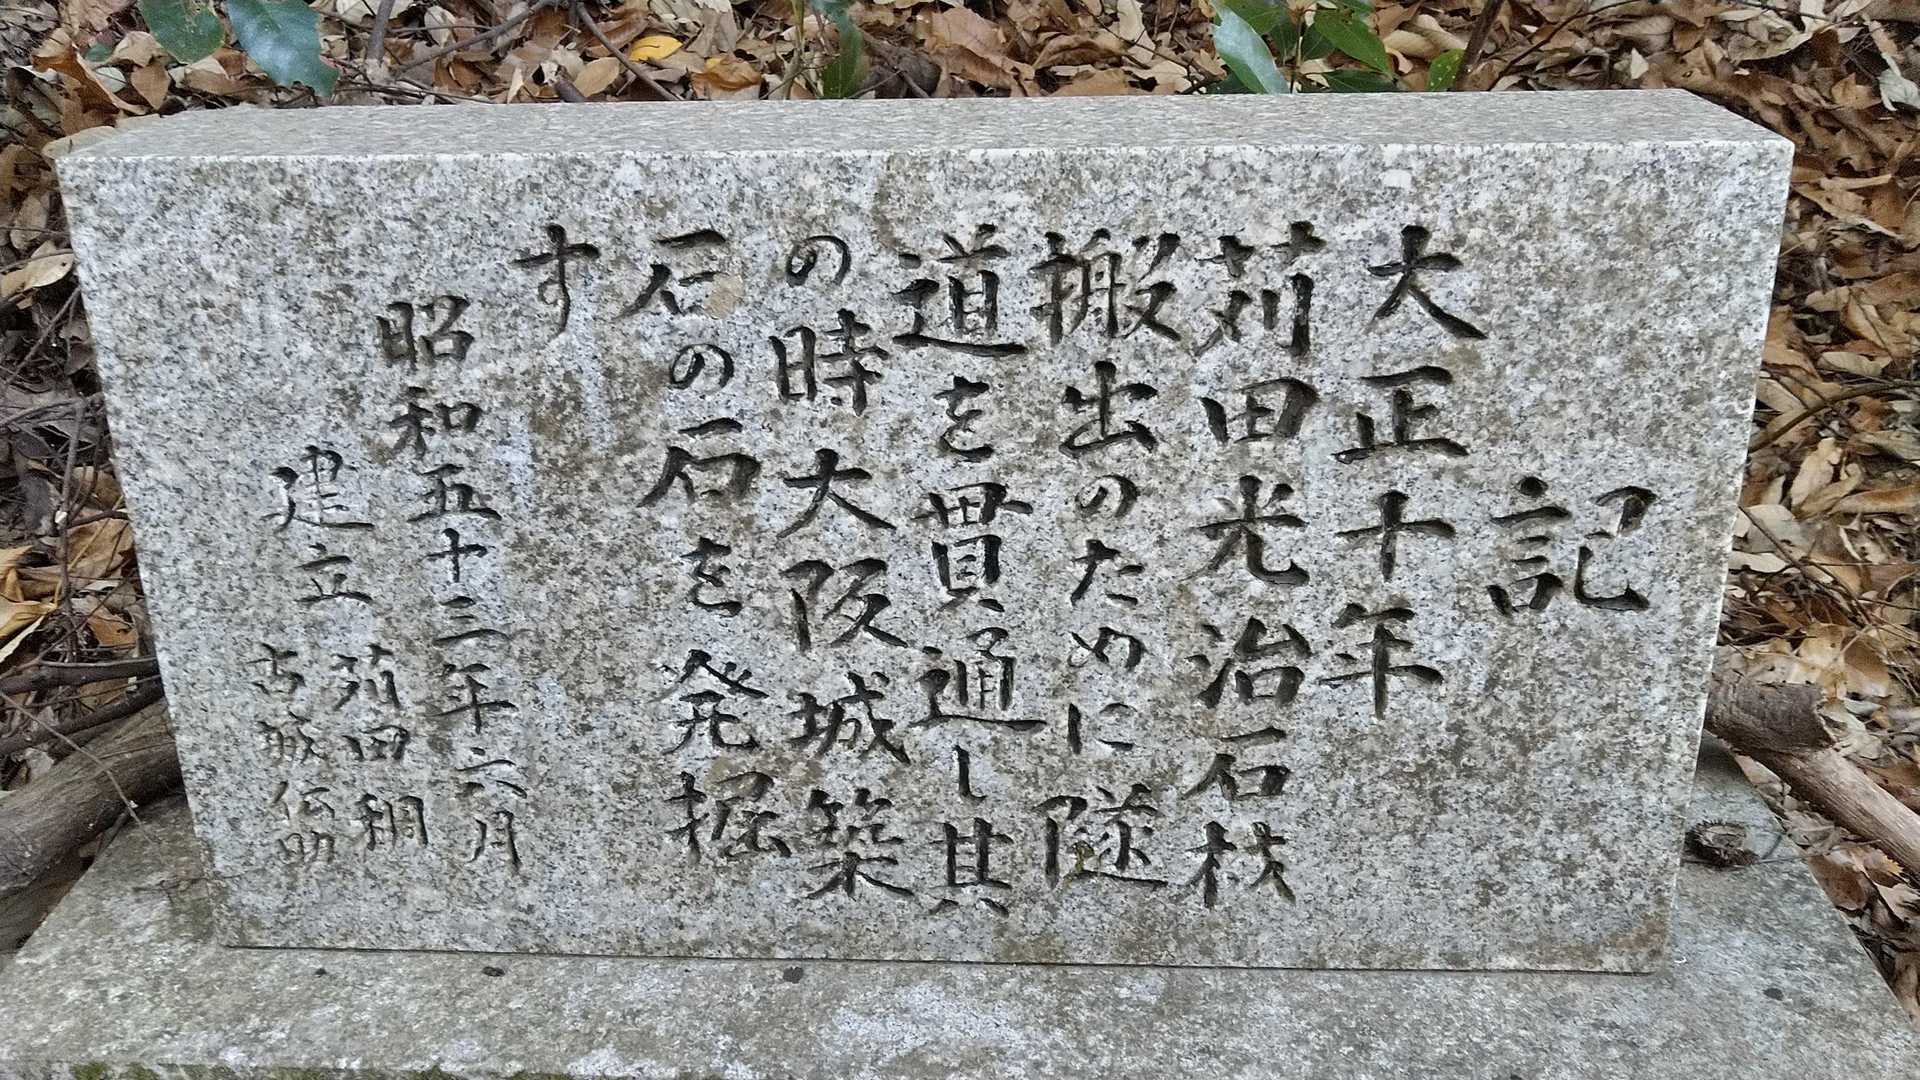 記
大正十年
苅田光治石材
搬出のために隧
道を貫通し其
の時大阪城築
石の石を発掘
す
昭和五十三年六月
建立 苅田稠
古城伝助